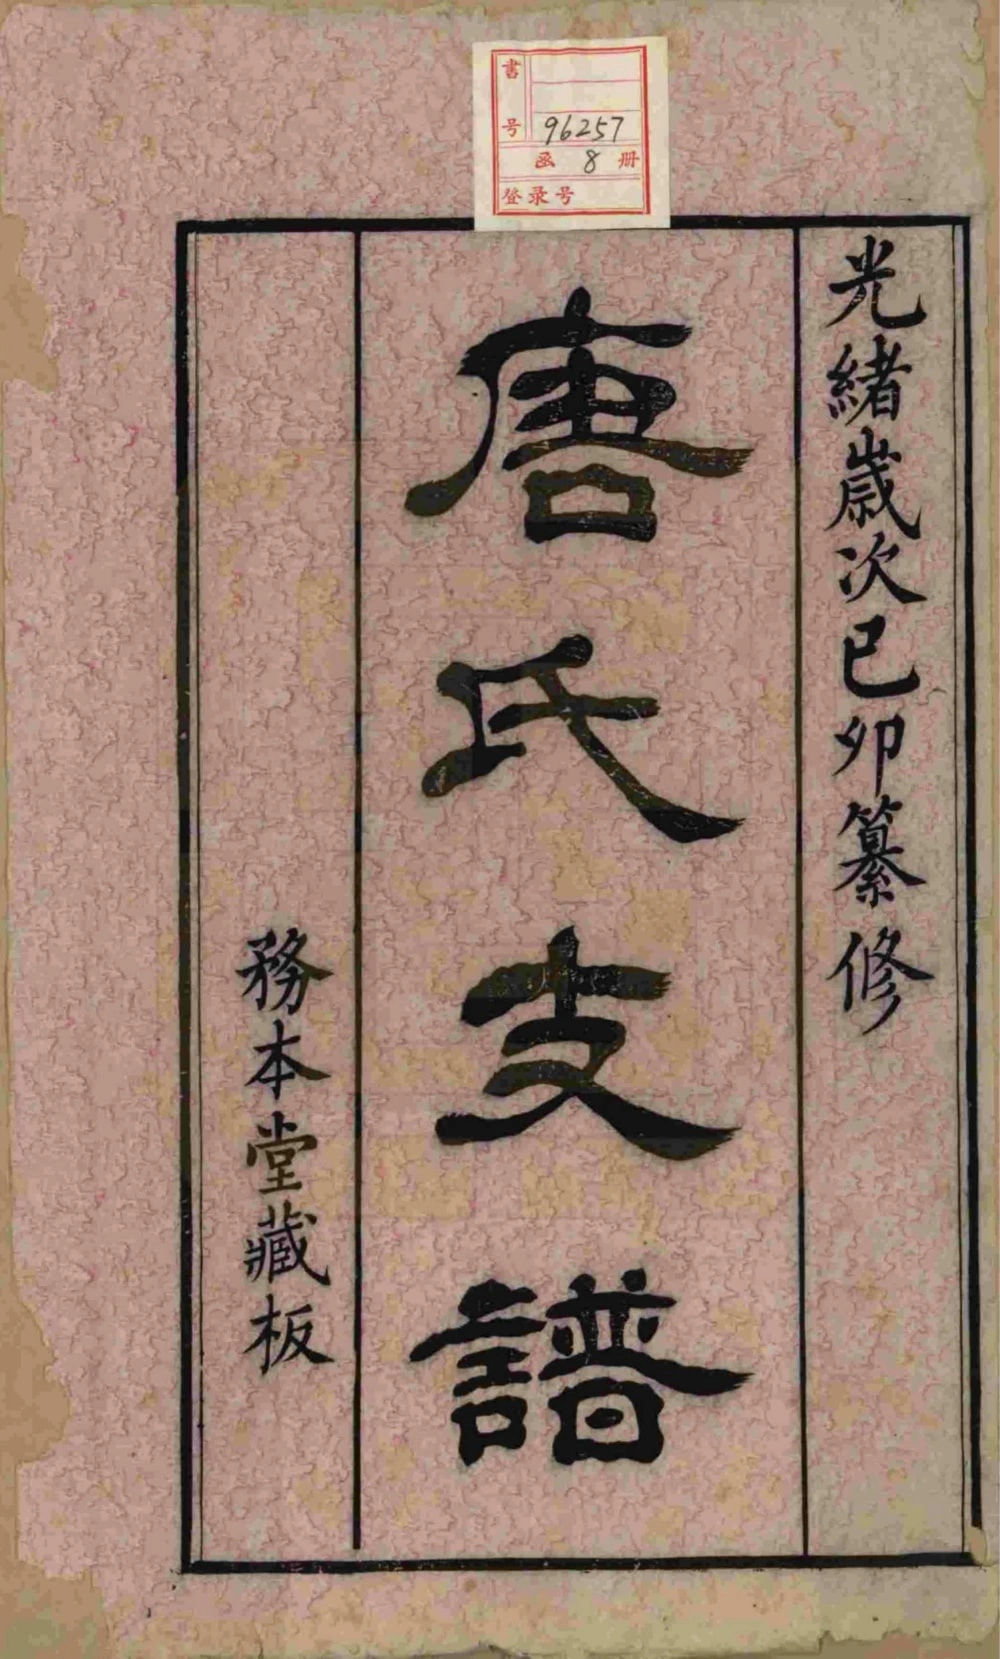 書号 96257
函 8 册
登录号
光緒歲次己卯纂修
唐氏支譜
務本堂藏板